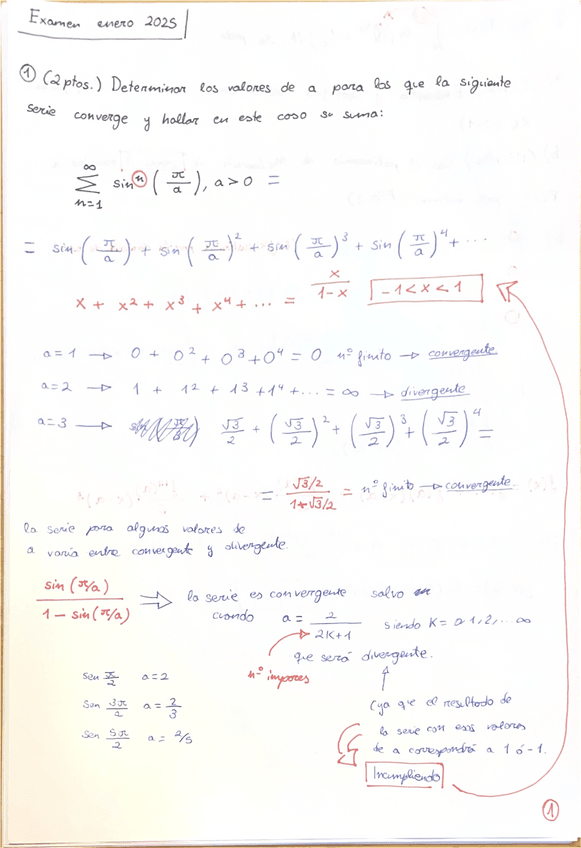 Examen enero 2025
① (2 ptos.) Determinar los valores de a para los que la siguiente
serie converge y hallar en este caso su suma:
∞
∑ sin^n (π/a), a > 0 =
n=1
= sin (π/a) + sin (π/a)^2 + sin (π/a)^3 + sin (π/a)^4 + ...
x + x^2 + x^3 + x^4 + ... = x/(1-x) -1 < x < 1
a=1 → 0 + 0^2 + 0^3 + 0^4 = 0 nº finito → convergente
a=2 → 1 + 1^2 + 1^3 + 1^4 + ... = ∞ → divergente
a=3 → √3/2 + (√3/2)^2 + (√3/2)^3 + (√3/2)^4 =
= (√3/2)/(1-√3/2) = nº finito → convergente.
la serie para algunos valores de
a varia entre convergente y divergente.
sin (π/a)/(1 - sin (π/a)) ⇒ la serie es convergente salvo
cuando a = 2/(2K+1) siendo K = 0 1, 2, ... ∞
nº impares que será divergente.
sen π/2 a=2
sen 3π/2 a = 2/3
sen 5π/2 a = 2/5
(ya que el resultado de
la serie con esos valores
de a corresponderá a 1 ó -1.
Incumpliendo
①